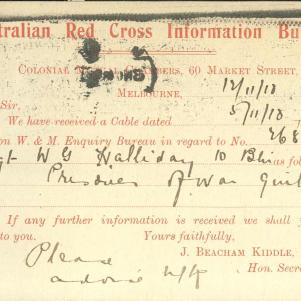 ralian Red Cross Information Bu
COLONIAL CHAMBERS, 60 MARKET STREET,
MELBOURNE, 12/11/18
Sir,
We have received a Cable dated 5/11/18
on W. & M. Enquiry Bureau in regard to No. 268
gt W G Halliday 10 Bn as fol
Prisoner of War
If any further information is received we shall
to you. Yours faithfully,
J. BEACHAM KIDDLE,
Please Hon. Secre
advise n/k